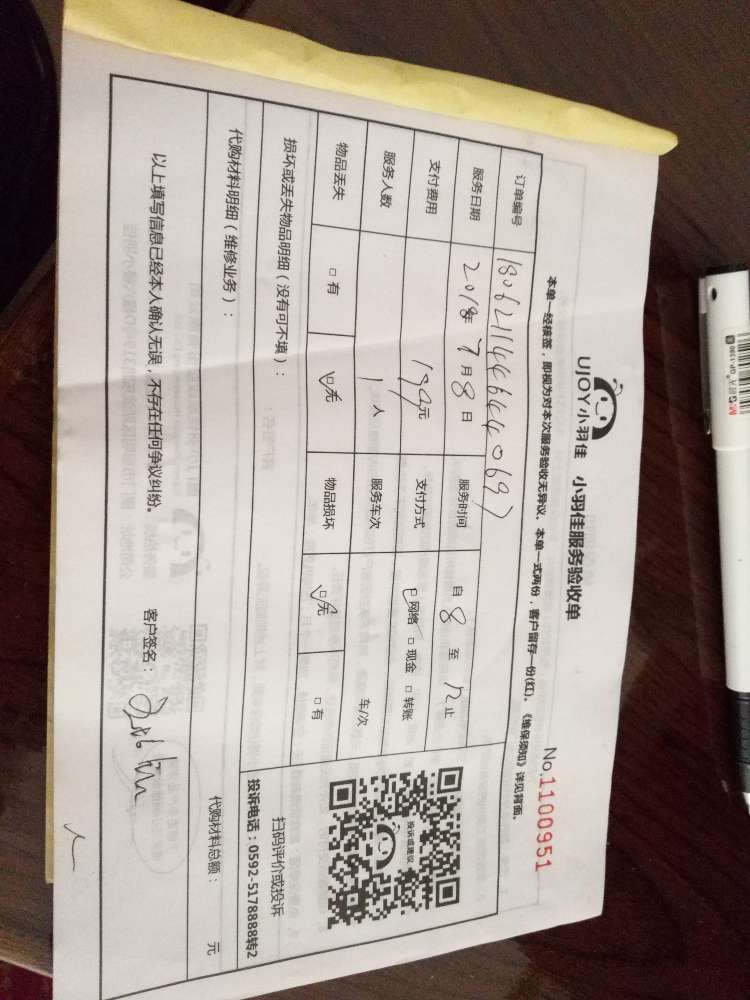 UJOY小羽佳 小羽佳服务验收单
No.1100951
本单一经核签，即视为对本次服务验收无异议。本单一式两份，客户留存一份(红)。《维保须知》详见背面。
订单编号
服务日期 2018年7月8日 服务时间 自8至12止
支付费用 199元 支付方式 网络 现金 转账
服务人数 1人 服务车次 车/次
物品丢失 有 无 物品损坏 无 有
损坏或丢失物品明细（没有可不填）：
投诉或建议
扫码评价或投诉
投诉电话：0592-5178888转2
代购材料明细（维修业务）： 代购材料总额： 元
以上填写信息已经本人确认无误，不存在任何争议纠纷。 客户签名：
M&G